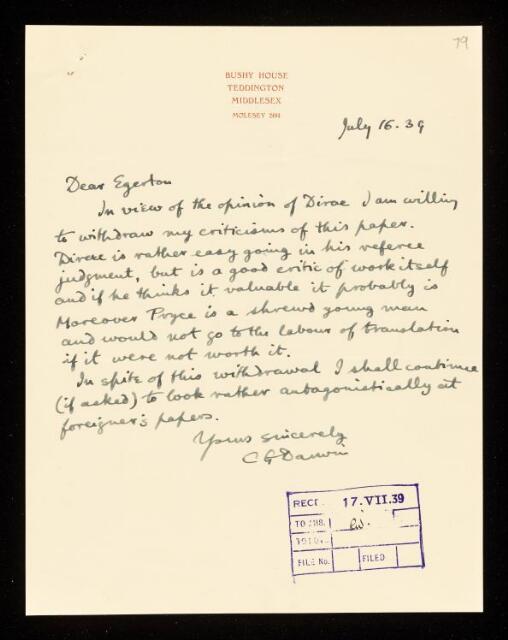 79
BUSHY HOUSE
TEDDINGTON
MIDDLESEX
MOLESEY
July 16. 39
Dear Egerton
In view of the opinion of Dirac I am willing
to withdraw my criticisms of this paper.
Dirac is rather easy going in his referee
judgment, but is a good critic of work itself
and if he thinks it valuable it probably is
Moreover Pryce is a shrewd young man
and would not go to the labour of translation
if it were not worth it.
In spite of this withdrawal I shall continue
(if asked) to look rather antagonistically at
foreigner's papers.
Yours sincerely
C G Darwin
17.VII.39
FILE No.
FILED